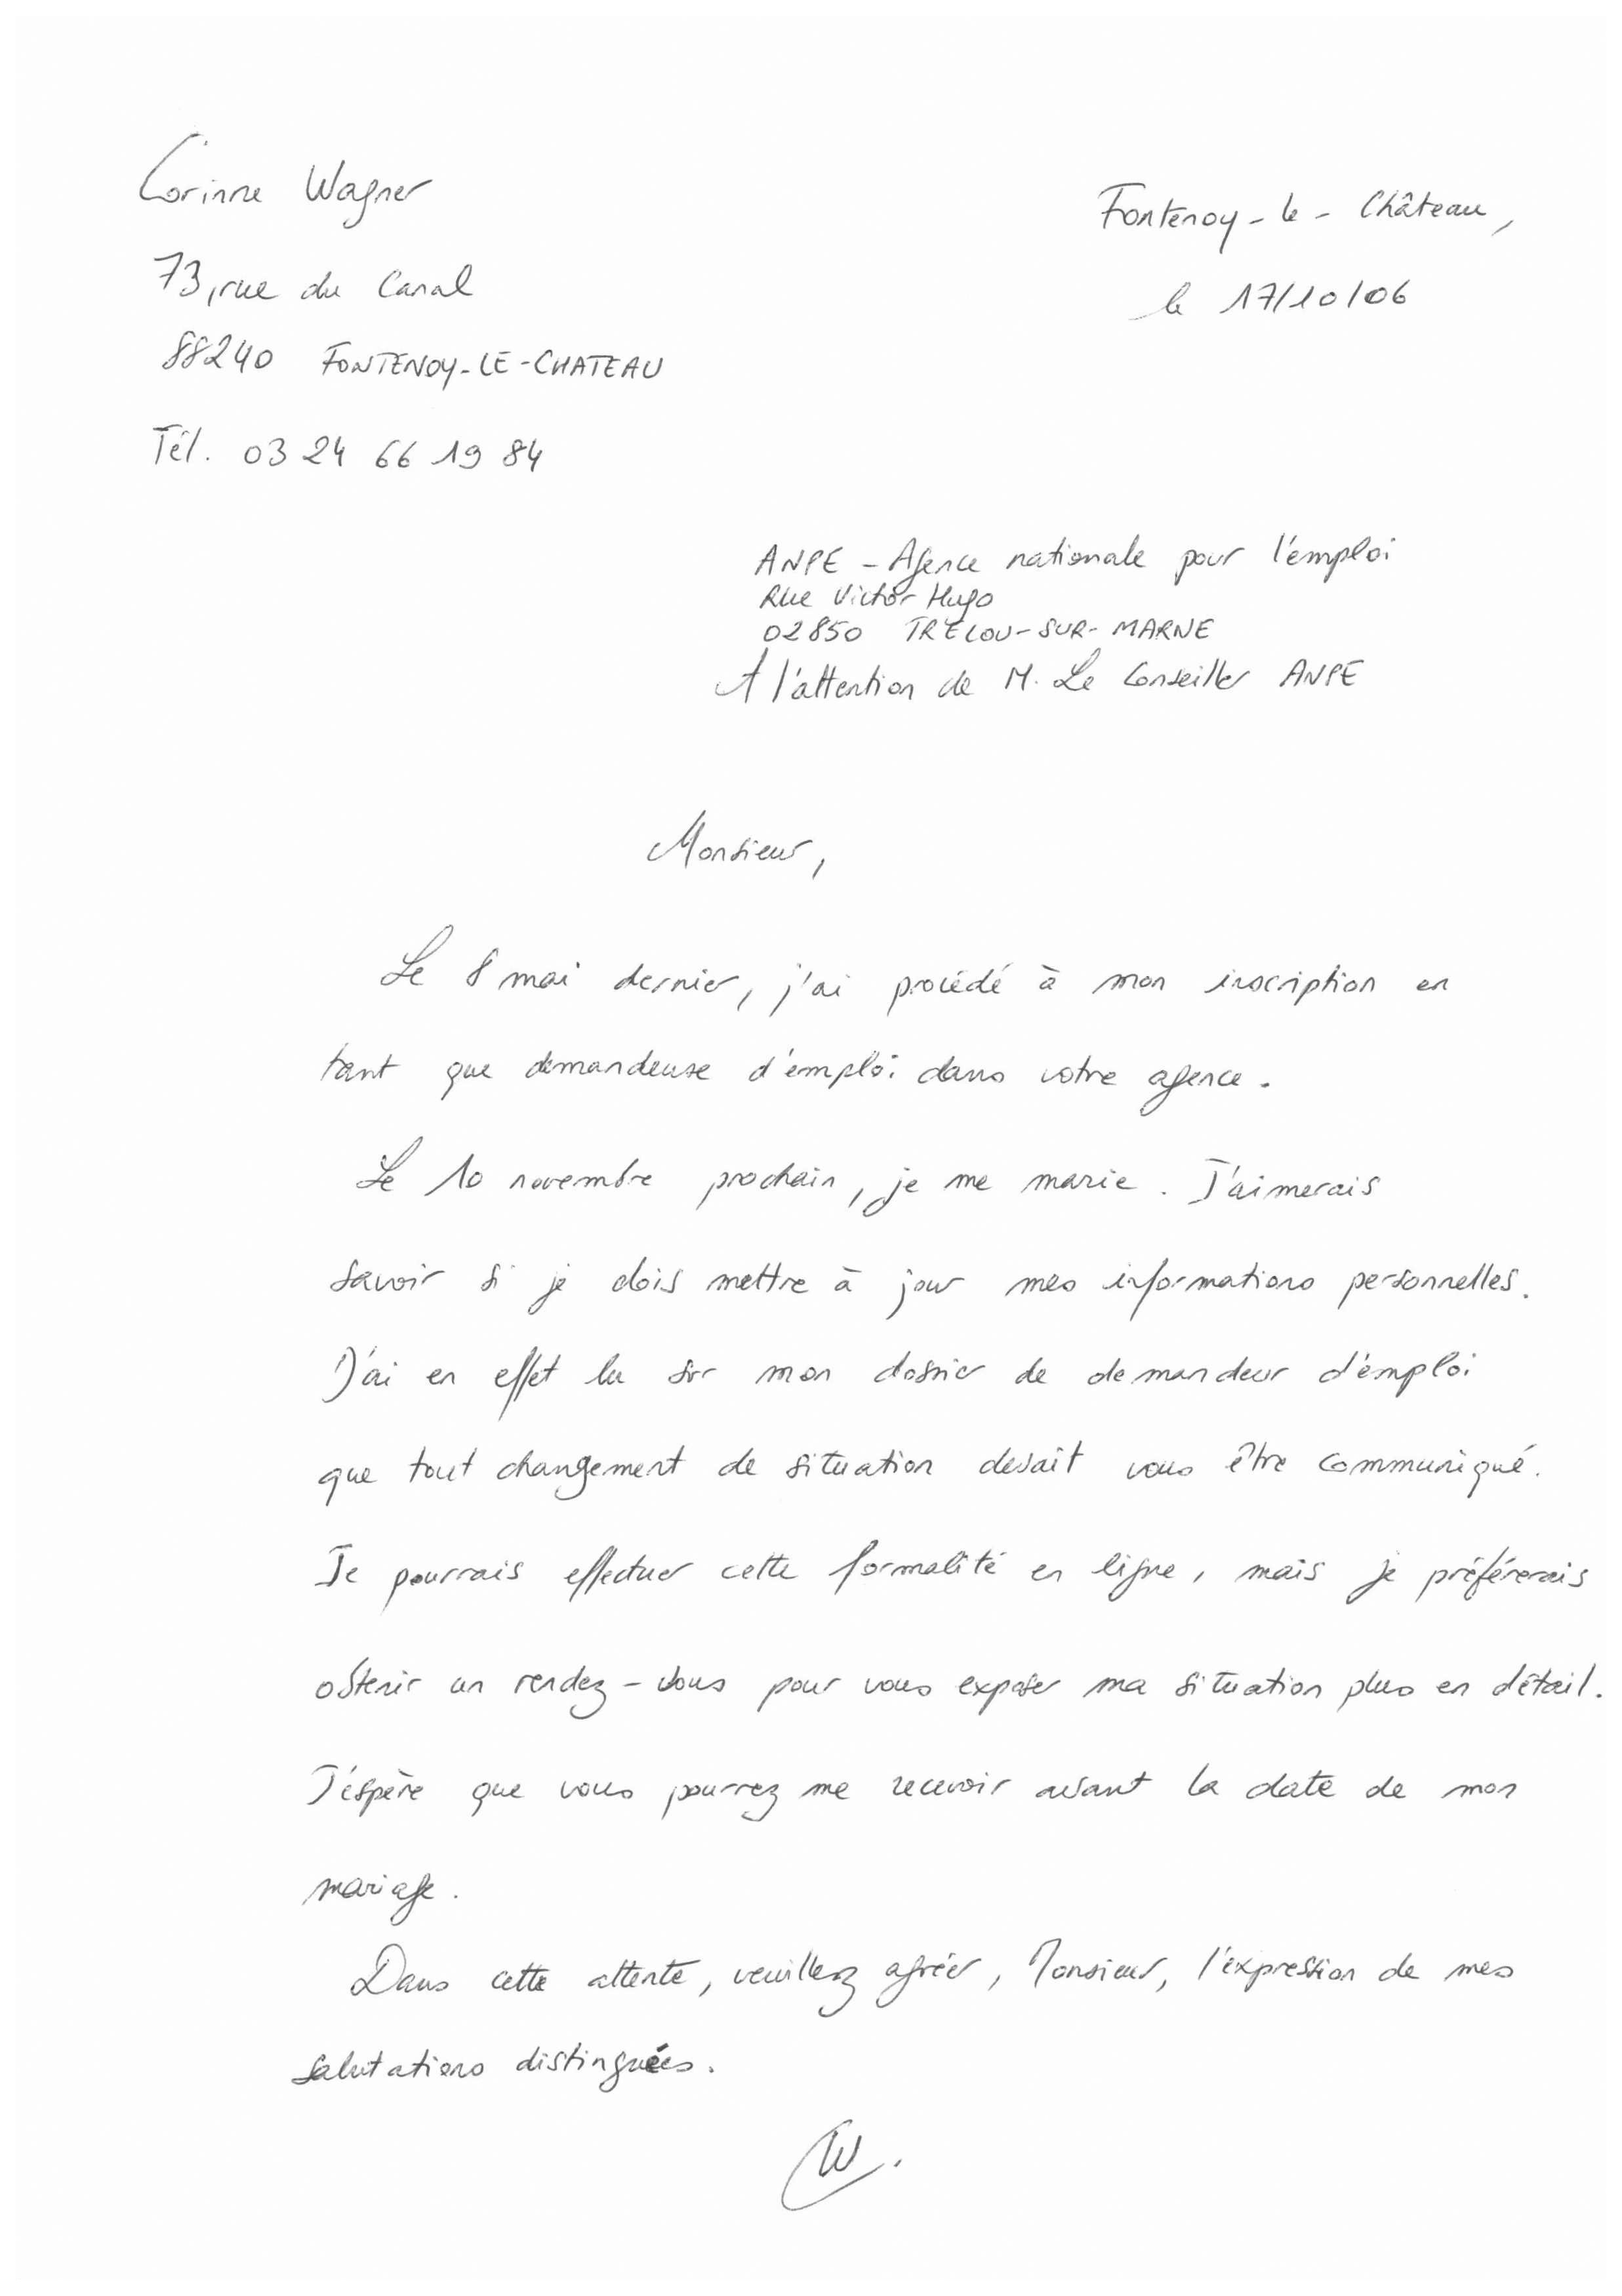 Corinne Wagner
73, rue du Canal
88240 FONTENOY-LE-CHATEAU
Tél. 03 24 66 19 84
Fontenoy-le-Château,
le 17/10/06
ANPE - Agence nationale pour l'emploi
Rue Victor Hugo
02850 TRELOU-SUR-MARNE
A l'attention de M. Le Conseiller ANPE
Monsieur,
Le 8 mai dernier, j'ai procédé à mon inscription en
tant que demandeuse d'emploi dans votre agence.
Le 10 novembre prochain, je me marie. J'aimerais
savoir si je dois mettre à jour mes informations personnelles.
J'ai en effet lu sur mon dossier de demandeur d'emploi
que tout changement de situation devait vous être communiqué.
Je pourrais effectuer cette formalité en ligne, mais je préférerais
obtenir un rendez-vous pour vous exposer ma situation plus en détail.
J'éspère que vous pourrez me recevoir avant la date de mon
mariage.
Dans cette attente, veuillez agréer, Monsieur, l'expression de mes
salutations distinguées.
CW.